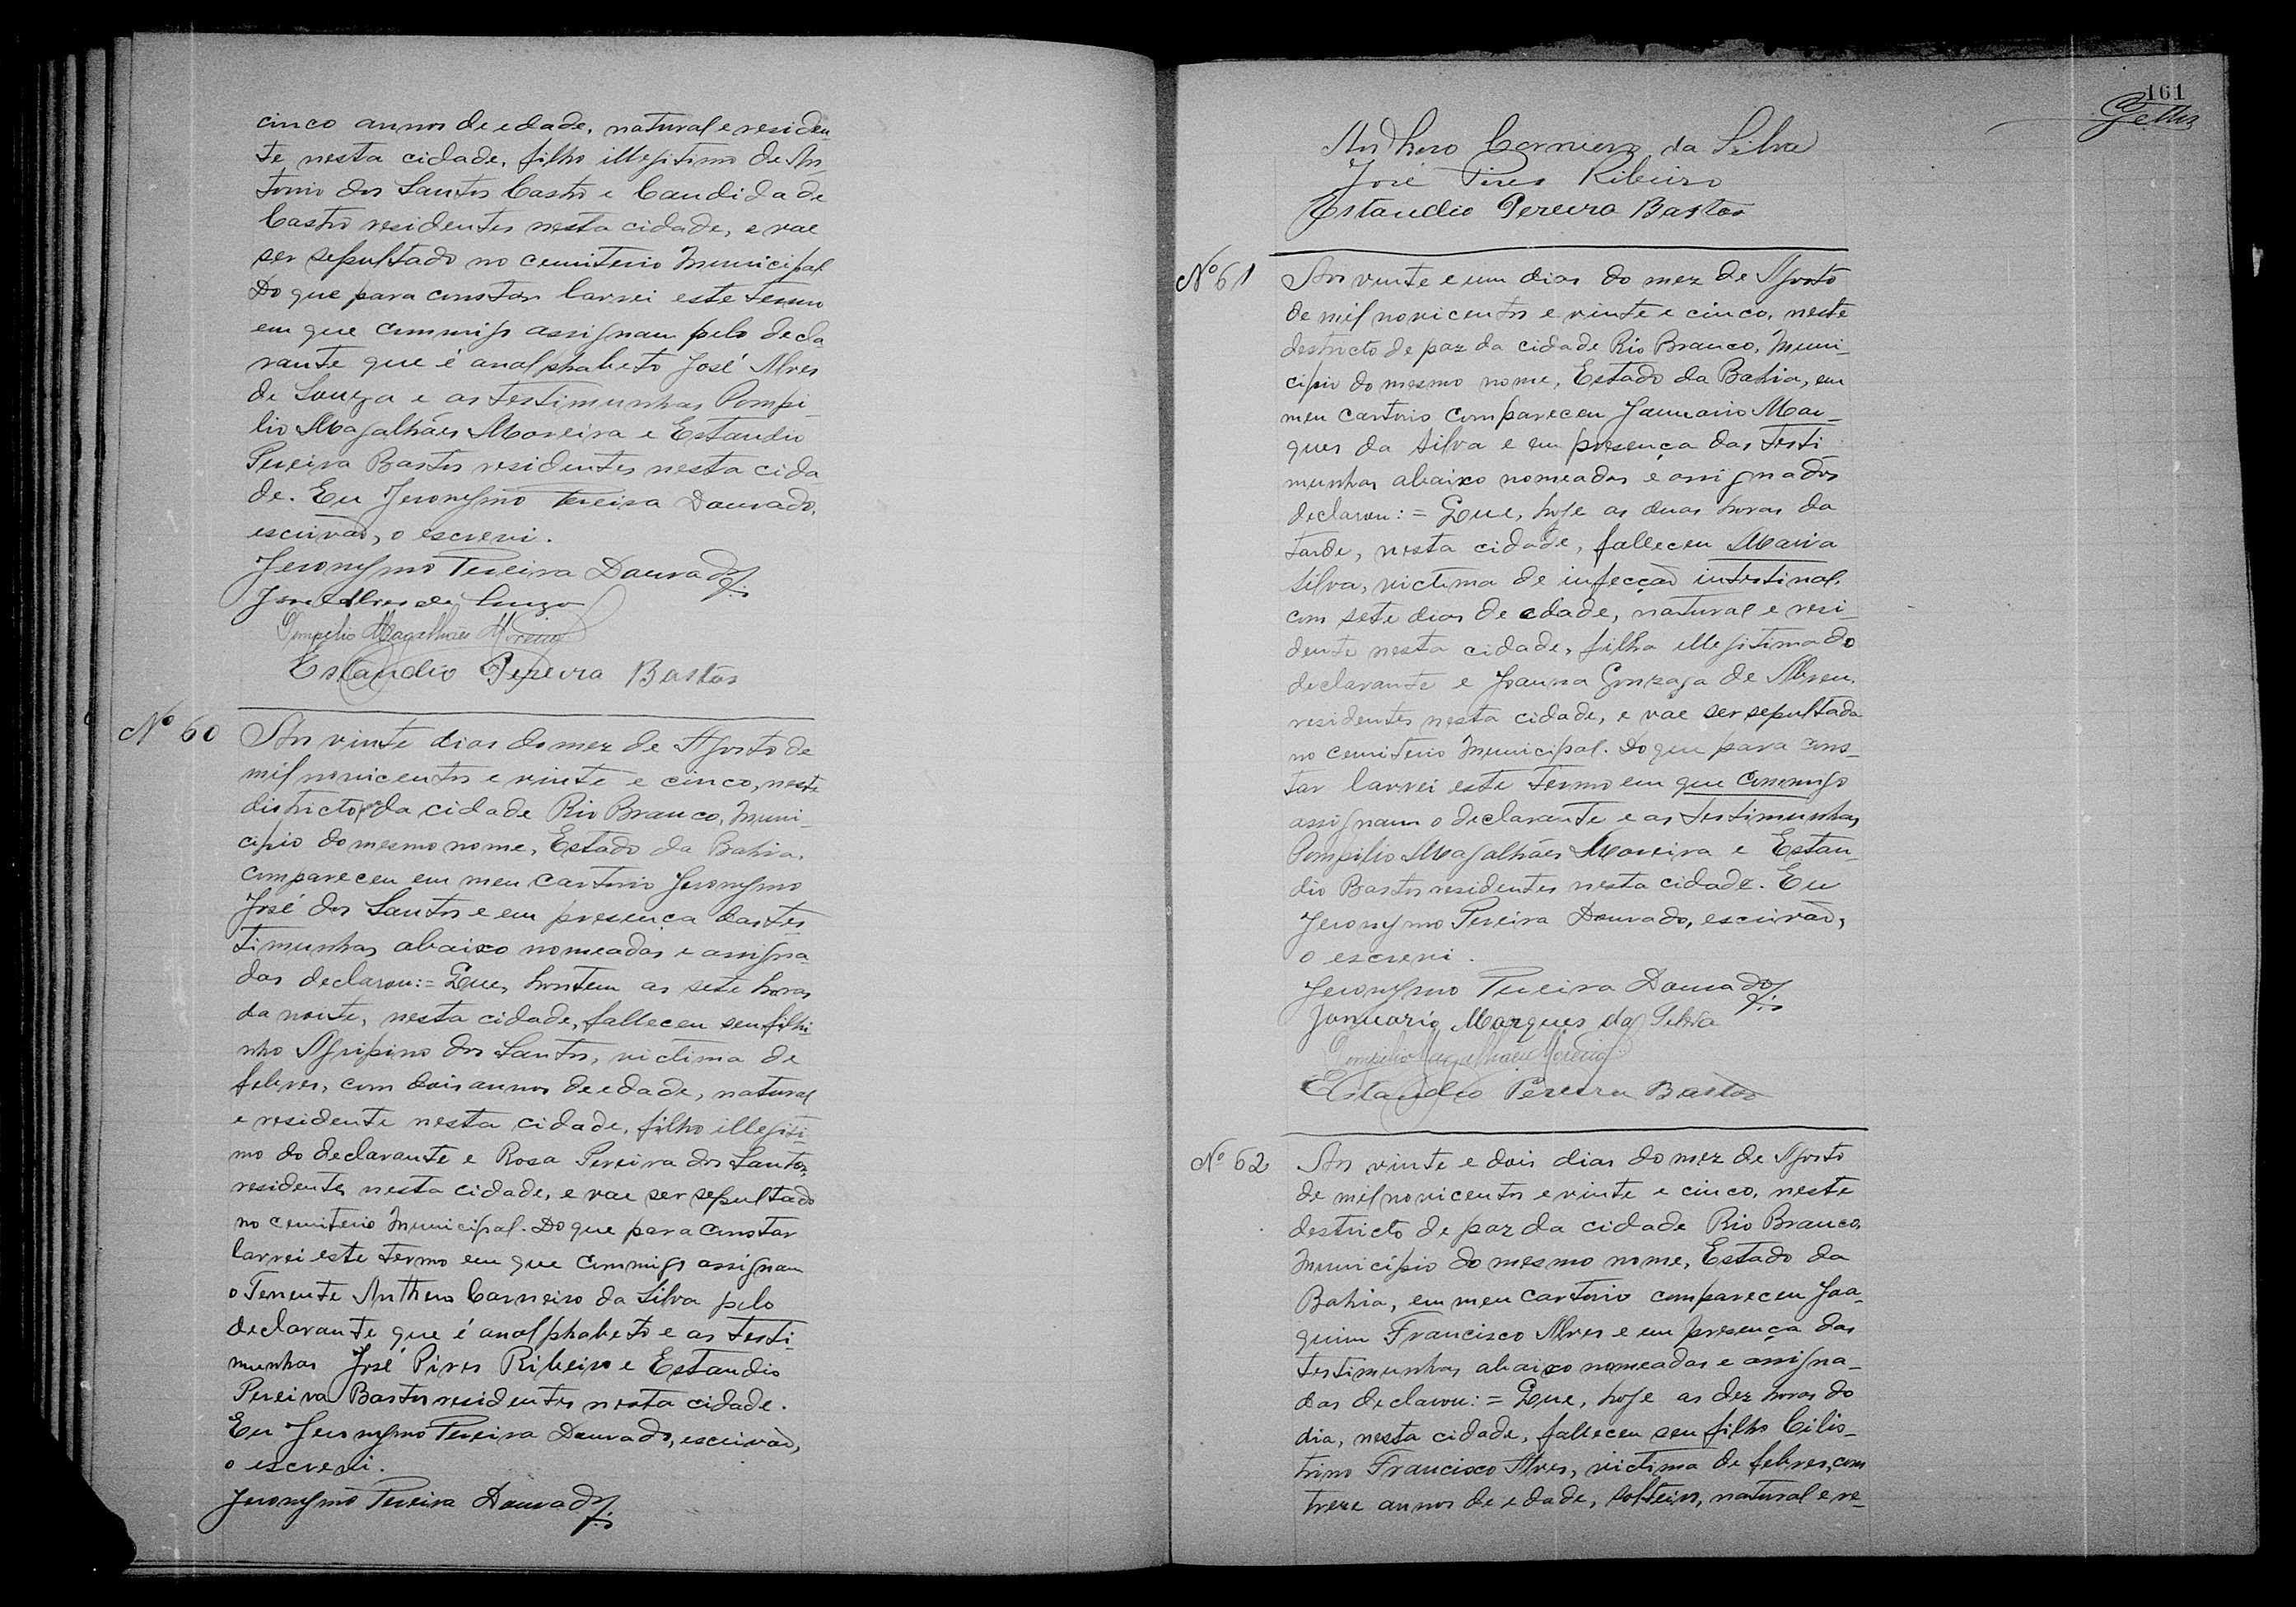 cinco annos de edade, natural e residen-
te nesta cidade, filho illegitimo de An-
tonio dos Santos Castro e Candida de
Castro residentes nesta cidade, e vae
ser sepultado no cemiterio Municipal
Do que para constar lavrei este termo
em que commigo assignam pelo decla
rante que é analphabeto José Alves
de Souza e as testimunhas Pompi-
lio Magalhães Moreira e Estaudio
Pereira Bastos residentes nesta cida
de. Eu Jeronymo Pereira Dourado,
escrivão, o escrevi.
Jeronymo Pereira Dourado
José Alves de Souza
Pompilio Magalhães Moreira
Estaudio Pereira Bastos
Nº 60
Aos vinte dias do mez de Agosto de
mil novicentos e vinte e cinco, neste
districto da cidade Rio Branco, Muni-
cipio do mesmo nome, Estado da Bahia,
compareceu em meu cartorio Jeronymo
José dos Santos e em presença das tes-
timunhas abaixo nomeadas e assigna-
das declarou:= Que, hontem as sete horas
da noite, nesta cidade, falleceu seu filhi
nho Agripino dos Santos, victima de
febres, com dois annos de edade, natural
e residente nesta cidade, filho illegiti-
mo do declarante e Rosa Pereira dos Santos,
residentes nesta cidade, e vae ser sepultado
no cemiterio Municipal. Do que para constar
lavrei este termo em que commigo assignam
o Tenente Anthero Carneiro da Silva pelo
declarante que é analphabeto e as testi-
munhas José Pires Ribeiro e Estaudio
Pereira Bastos residentes nesta cidade.
Eu Jeronymo Pereira Dourado, escrivão,
o escrevi.
Jeronymo Pereira Dourado
161
Anthero Carneiro da Silva
José Pires Ribeiro
Estaudio Pereira Bastos
Nº 61
Aos vinte e um dias do mez de Agosto
de mil novicentos e vinte e cinco, neste
destricto de paz da cidade Rio Branco, Muni-
cipio do mesmo nome, Estado da Bahia, em
meu cartorio compareceu Januario Mar-
ques da Silva e em presença das testi-
munhas abaixo nomeadas e assignados
declarou:= Que, hoje as duas horas da
tarde, nesta cidade, falleceu Maria
Silva, victima de infecção intestinal,
com sete dias de edade, natural e resi-
dente nesta cidade, filha illegitima do
declarante e Joanna Gonzaga de Abreu,
residentes nesta cidade, e vae ser sepultada
no cemiterio Municipal. Do que para cons-
tar lavrei este termo em que commigo
assignam o declarante e as testimunhas
Pompilio Magalhães Moreira e Estau-
dio Bastos residentes nesta cidade. Eu
Jeronymo Pereira Dourado, escrivão,
o escrevi.
Jeronymo Pereira Dourado
Januario Marques da Silva
Pompilio Magalhães Moreira
Estaudio Pereira Bastos
Nº 62
Aos vinte e dois dias do mez de Agosto
de mil novicentos e vinte e cinco, neste
destricto de paz da cidade Rio Branco,
Municipio do mesmo nome, Estado da
Bahia, em meu cartorio compareceu Joa-
quim Francisco Alves e em presença das
testimunhas abaixo nomeadas e assigna-
das declarou:= Que, hoje as dez horas do
dia, nesta cidade, falleceu seu filho Cilis-
trino Francisco Alves, victima de febres, com
treze annos de edade, solteiro, natural e re-